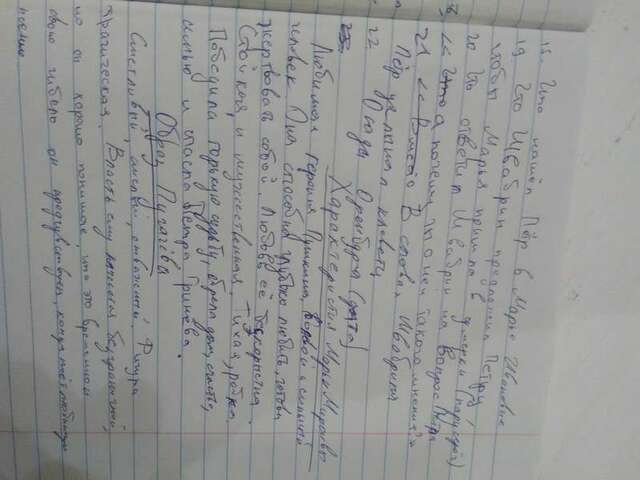 18. Что нашёл Пётр в Марье Ивановне
19 Что Швабрин предложил Петру,
чтобы Марья пришла в сумерки (пару серёг)
20 Что ответил Швабрин на вопрос Петра
<< Что а почему ты о ней такого мнения?>>
21 << Вместо В словах Швабрина
Пётр услышал клевету
22 Осада Оренбурга (дата)
23
Характеристика Марьи Мироновы
Любимая героиня Пушкина, волевой и сильный
человек. Она способна глубоко любить, готова
жертвовать собой. Любовь её бескорыстна.
Стойкая, и мужественная. Тихая, робка
Победила горькую судьбу, обрела дом, счастье,
семью и спасла Петра Гринёва.
Образ Пугачёва
Сметливый, смелый, отважный. Фигура
трагическая. Власть ему безграничной,
но он хорошо понимает что это временной
свою гибель он предчувствует, когда поёт любимую
песню.